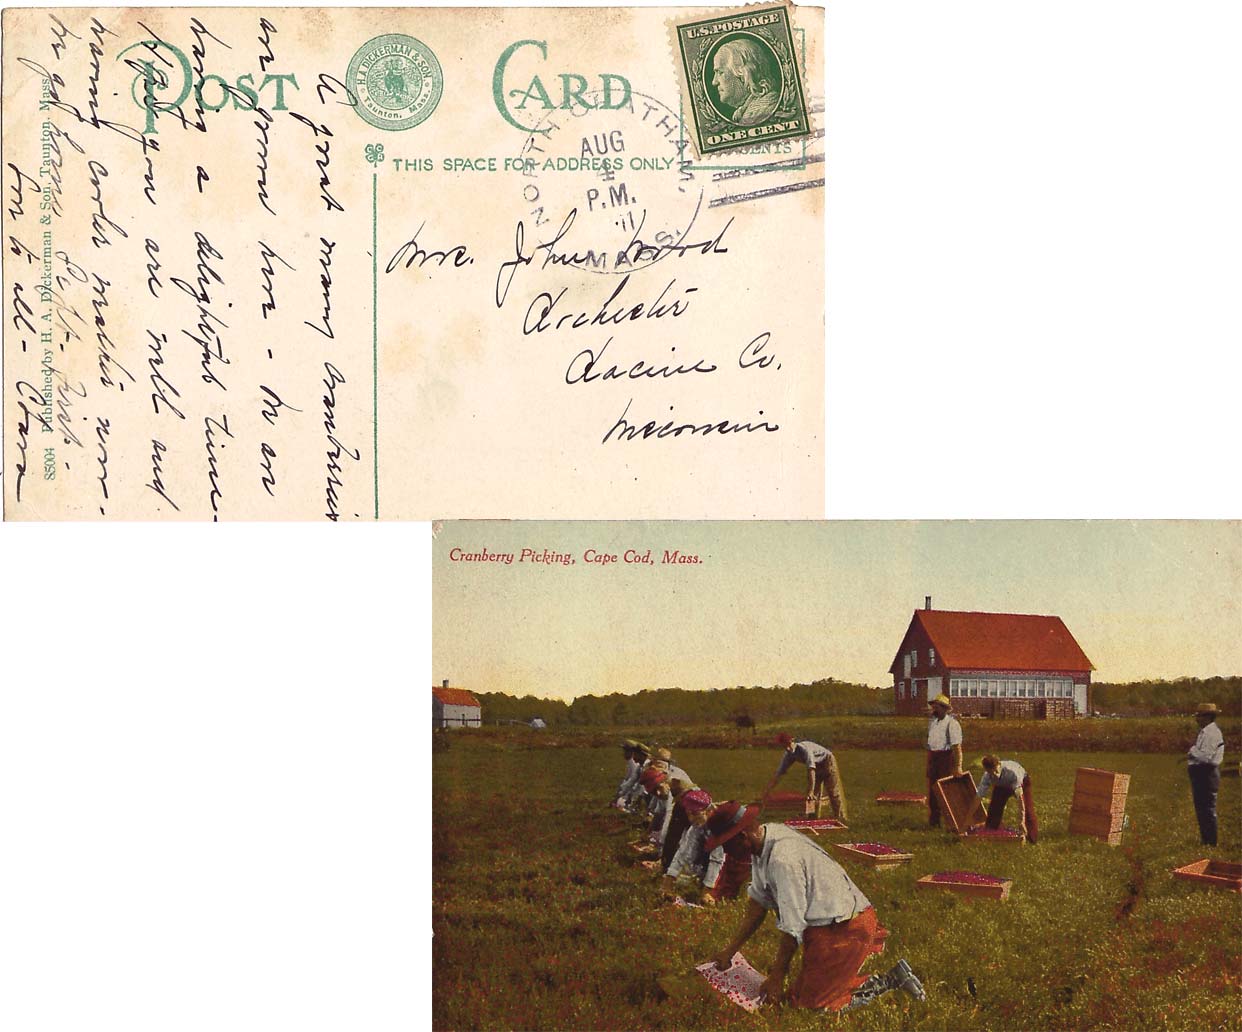 POST CARD
H. A. DICKERMAN & SON.
Taunton, Mass.
U.S. POSTAGE
ONE CENT
CENTS
THIS SPACE FOR ADDRESS ONLY
NORTH CHATHAM, MASS.
AUG
4
P.M.
'11
A great many cranberries
are grown here - Am
having a delightful time -
Hope you are well and
having cooler weather now -
for to all - Clara
Mrs. John Wood
Rochester
Racine Co.
Wisconsin
85004 Published by H. A. Dickerman & Son, Taunton, Mass.
Cranberry Picking, Cape Cod, Mass.